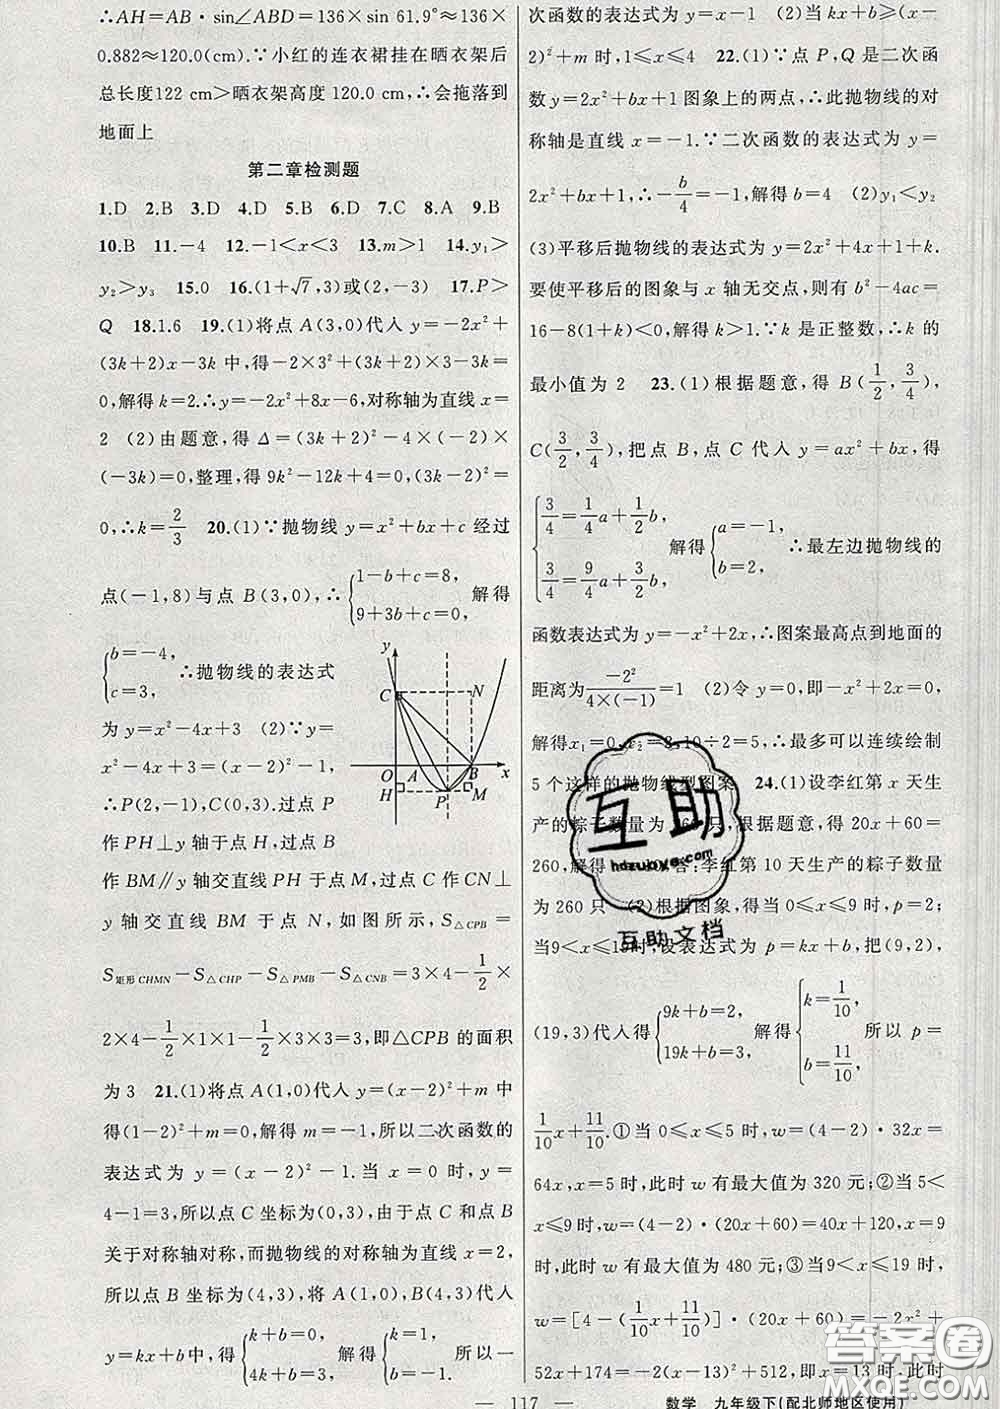 ∴AH=AB·sin∠ABD=136×sin 61.9°≈136×
0.882≈120.0(cm).∵小红的连衣裙挂在晒衣架后
总长度122 cm>晒衣架高度 120.0 cm,∴会拖落到
地面上
第二章检测题
1.D 2.B 3.D 4.D 5.B 6.D 7.C 8.A 9.B
10.B 11.-4 12.-1<x<3 13.m>1 14.y₁>
y₂>y₃ 15.0 16.(1+√7,3)或(2,-3) 17.P>
Q 18.1.6 19.(1)将点 A(3,0)代入 y=-2x²+
(3k+2)x-3k 中,得-2×3²+(3k+2)×3-3k=
0,解得 k=2.∴y=-2x²+8x-6,对称轴为直线 x=
2 (2)由题意,得 Δ=(3k+2)²-4×(-2)×
(-3k)=0,整理,得 9k²-12k+4=0,(3k-2)²=
0,∴k=2/3 20.(1)∵抛物线 y=x²+bx+c 经过
点(-1,8)与点 B(3,0),∴{1-b+c=8, 9+3b+c=0, 解得
{b=-4, c=3, ∴抛物线的表达式
为 y=x²-4x+3 (2)∵y=
x²-4x+3=(x-2)²-1,
∴P(2,-1),C(0,3).过点 P
作 PH⊥y 轴于点 H,过点 B
作 BM∥y 轴交直线 PH 于点 M,过点 C 作 CN⊥
y 轴交直线 BM 于点 N,如图所示,S△CPB=
S矩形CHMN-S△CHP-S△PMB-S△CNB=3×4-1/2×
2×4-1/2×1×1-1/2×3×3=3,即△CPB 的面积
为 3 21.(1)将点 A(1,0)代入 y=(x-2)²+m 中
得(1-2)²+m=0,解得 m=-1,所以二次函数的
表达式为 y=(x-2)²-1.当 x=0 时,y=
4-1=3,所以点 C 坐标为(0,3),由于点 C 和点 B
关于对称轴对称,而抛物线的对称轴为直线 x=2,
所以点 B 坐标为(4,3),将 A(1,0),B(4,3)代入
y=kx+b中,得{k+b=0, 4k+b=3, 解得{k=1, b=-1, 所以一
y
C
N
O
A
B
x
H
P
M
次函数的表达式为 y=x-1 (2)当 kx+b≥(x-
2)²+m 时,1≤x≤4 22.(1)∵点 P,Q 是二次函
数 y=2x²+bx+1 图象上的两点,∴此抛物线的对
称轴是直线 x=-1.∵二次函数的表达式为 y=
2x²+bx+1,∴-b/4=-1,解得 b=4 (2)y₁<y₂
(3)平移后抛物线的表达式为 y=2x²+4x+1+k.
要使平移后的图象与 x 轴无交点,则有 b²-4ac=
16-8(1+k)<0,解得 k>1.∵k 是正整数,∴k 的
最小值为 2 23.(1)根据题意,得 B(1/2,3/4),
C(3/2,3/4),把点 B,点 C 代入 y=ax²+bx,得
{3/4=1/4a+1/2b, 3/4=9/4a+3/2b, 解得{a=-1, b=2, ∴最左边抛物线的
函数表达式为 y=-x²+2x,∴图案最高点到地面的
距离为-2²/4×(-1)=1 (2)令 y=0,即-x²+2x=0,
解得x₁=0,x₂=2,10÷2=5,∴最多可以连续绘制
5 个这样的抛物线型图案 24.(1)设李红第 x 天生
产的粽子数量为 260 只,根据题意,得 20x+60=
260,解得 答:李红第 10 天生产的粽子数量
为 260 只 (2)根据图象,得当 0≤x≤9 时,p=2;
当9<x≤19时,设表达式为 p=kx+b,把(9,2),
(19,3)代入得{9k+b=2, 19k+b=3, 解得{k=1/10, b=11/10, 所以 p=
1/10x+11/10.①当 0≤x≤5 时,w=(4-2)·32x=
64x,x=5 时,此时 w 有最大值为 320 元;②当 5<
x≤9 时,w=(4-2)·(20x+60)=40x+120,x=9
时,此时 w 有最大值为 480 元;③当 9<x≤19 时,
w=[4-(1/10x+11/10)]·(20x+60)=-2x²+
52x+174=-2(x-13)²+512,即当 x=13 时,此时
互助
hdzuoye.com
互助文档
答案圈
— 117 —
数学 九年级下(配北师地区使用)